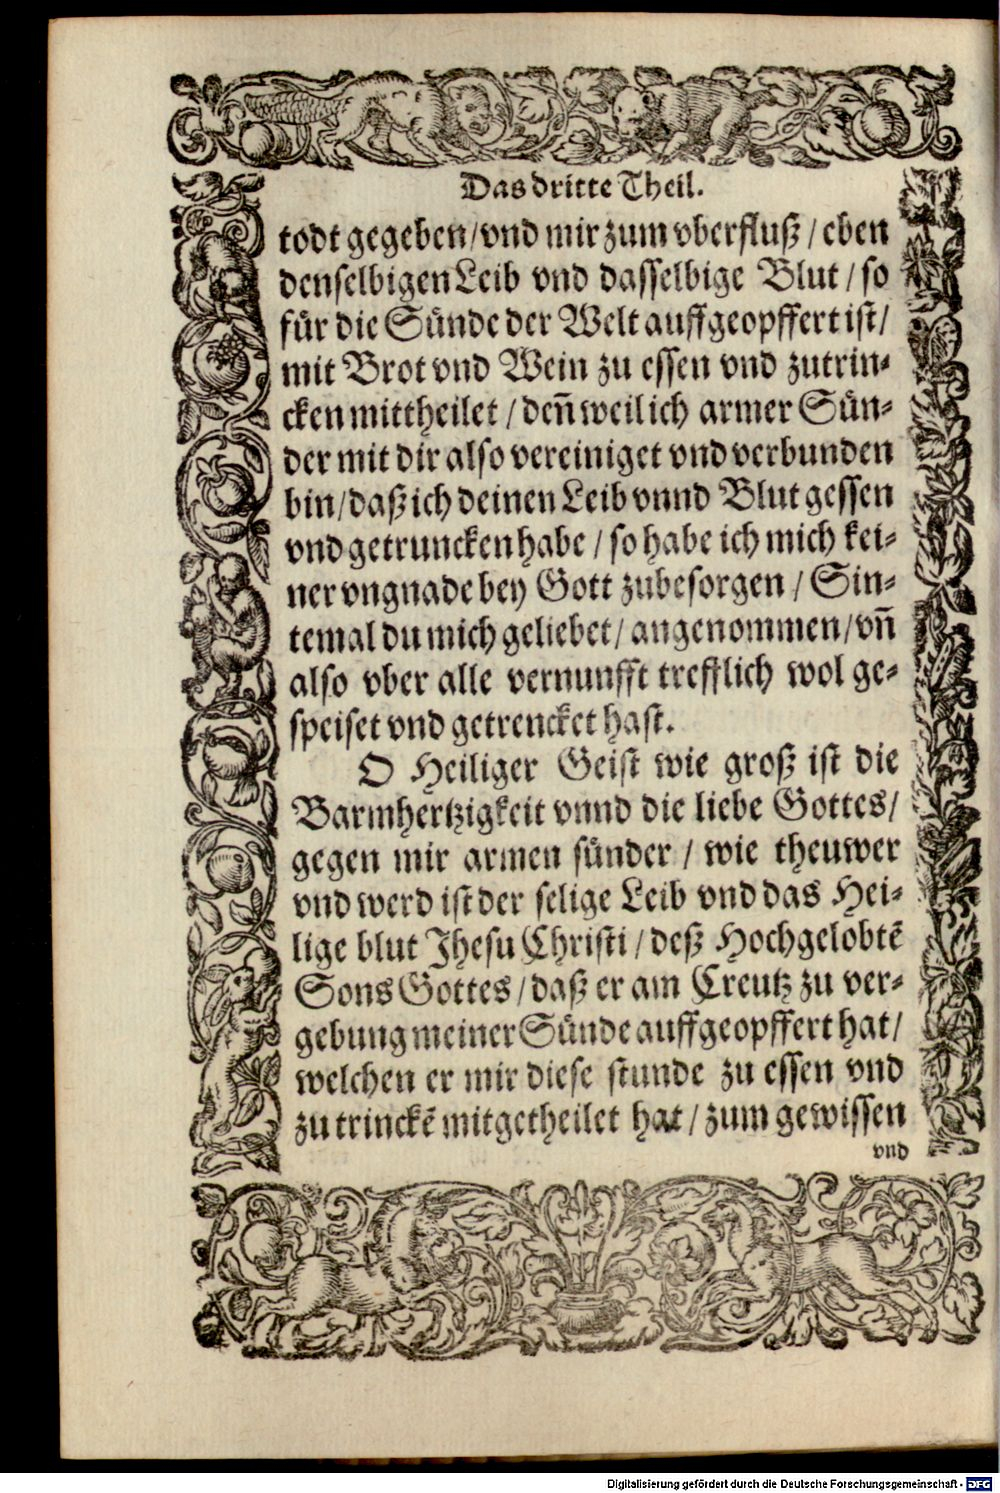 Das dritte Theil.
todt gegeben/vnd mir zum vberfluß/eben
denselbigen Leib vnd dasselbige Blut/so
für die Sünde der Welt auffgeopffert ist/
mit Brot vnd Wein zu essen vnd zutrin-
cken mittheilet/deñ weil ich armer Sün-
der mit dir also vereiniget vnd verbunden
bin/daß ich deinen Leib vnnd Blut gessen
vnd getruncken habe/so habe ich mich kei-
ner vngnade bey Gott zubesorgen/Sin-
temal du mich geliebet/angenommen/vñ
also vber alle vernunfft trefflich wol ge-
speiset vnd getrencket hast.
O Heiliger Geist wie groß ist die
Barmhertzigkeit vnnd die liebe Gottes/
gegen mir armen sünder/wie theuwer
vnd werd ist der selige Leib vnd das Hei-
lige blut Jhesu Christi/deß Hochgelobtẽ
Sons Gottes/daß er am Creutz zu ver-
gebung meiner Sünde auffgeopffert hat/
welchen er mir diese stunde zu essen vnd
zu trinckẽ mitgetheilet hat/zum gewissen
vnd
Digitalisierung gefördert durch die Deutsche Forschungsgemeinschaft - DFG